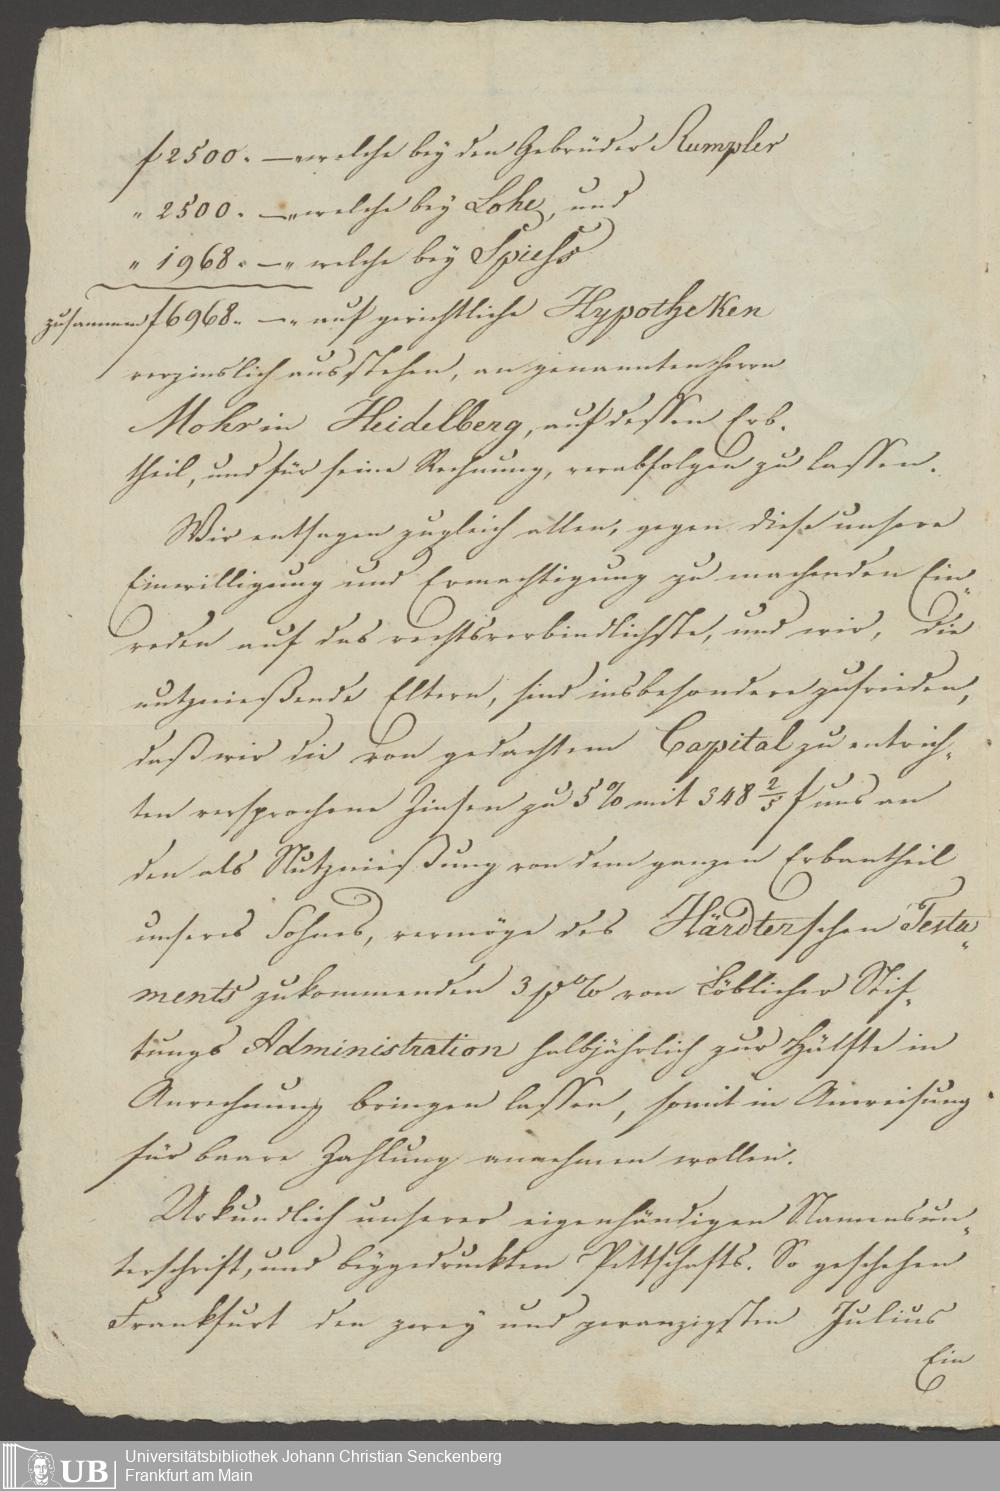 f 2500. — „ welche bey den Gebrüder Rumpler
„ 2500. — „ welche bey Lohe, und
„ 1968. — „ welche bey Spiess
zusammen f 6968. — „ auf gerichtliche Hypotheken
verzinslich ausstehen, an genannten Herrn
Mohr in Heidelberg, auf dessen Erb-
theil, und für seine Rechnung, verabfolgen zu lassen.
Wir entsagen zugleich allen, gegen diese unsere
Einwilligung und Ermächtigung zu machenden Ein-
reden auf das rechtsverbindlichste, und wir, die
nutznießende Eltern, sind insbesondere zufrieden,
daß wir die von gedachtem Capital zu entrich-
ten versprochene Zinsen zu 5 % mit 348 2/5 f uns an
den als Nutznießung von dem ganzen Erbantheil
unseres Sohnes, vermöge des Härdterschen Testa-
ments zukommenden 3 p% von Löblicher Stif-
tungs Administration halbjährlich zur Hälfte in
Anrechnung bringen lassen, somit in Anweisung
für baare Zahlung annehmen wollen.
Urkundlich unserer eigenhändigen Namensun-
terschrift, und beygedruckten Pettschafts. So geschehen
Frankfurt den zwey und zwanzigsten Julius
Ein
UB Universitätsbibliothek Johann Christian Senckenberg
Frankfurt am Main